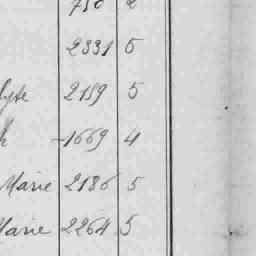 750 2
2331 5
lyte 2159 5
h 1669 4
Marie 2186 5
Marie 2264 5